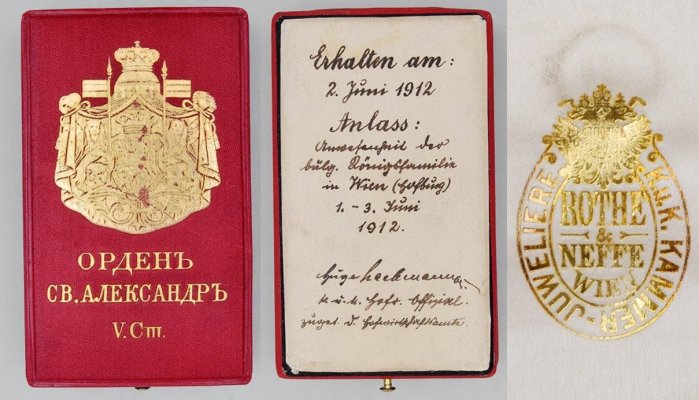 ОРДЕНЪ
СВ. АЛЕКСАНДРЪ
V. Ст.
Erhalten am:
2. Juni 1912
Anlass:
Anwesenheit der
bulg. Königsfamilie
in Wien (Hofburg)
1. - 3. Juni
1912.
Hugo
k. u. k. Hofw. Offizial.
zuget. d. Hofwirtschaftsamte.
K.u.K. KAMMER-JUWELIERE
ROTHE
&
NEFFE
WIEN